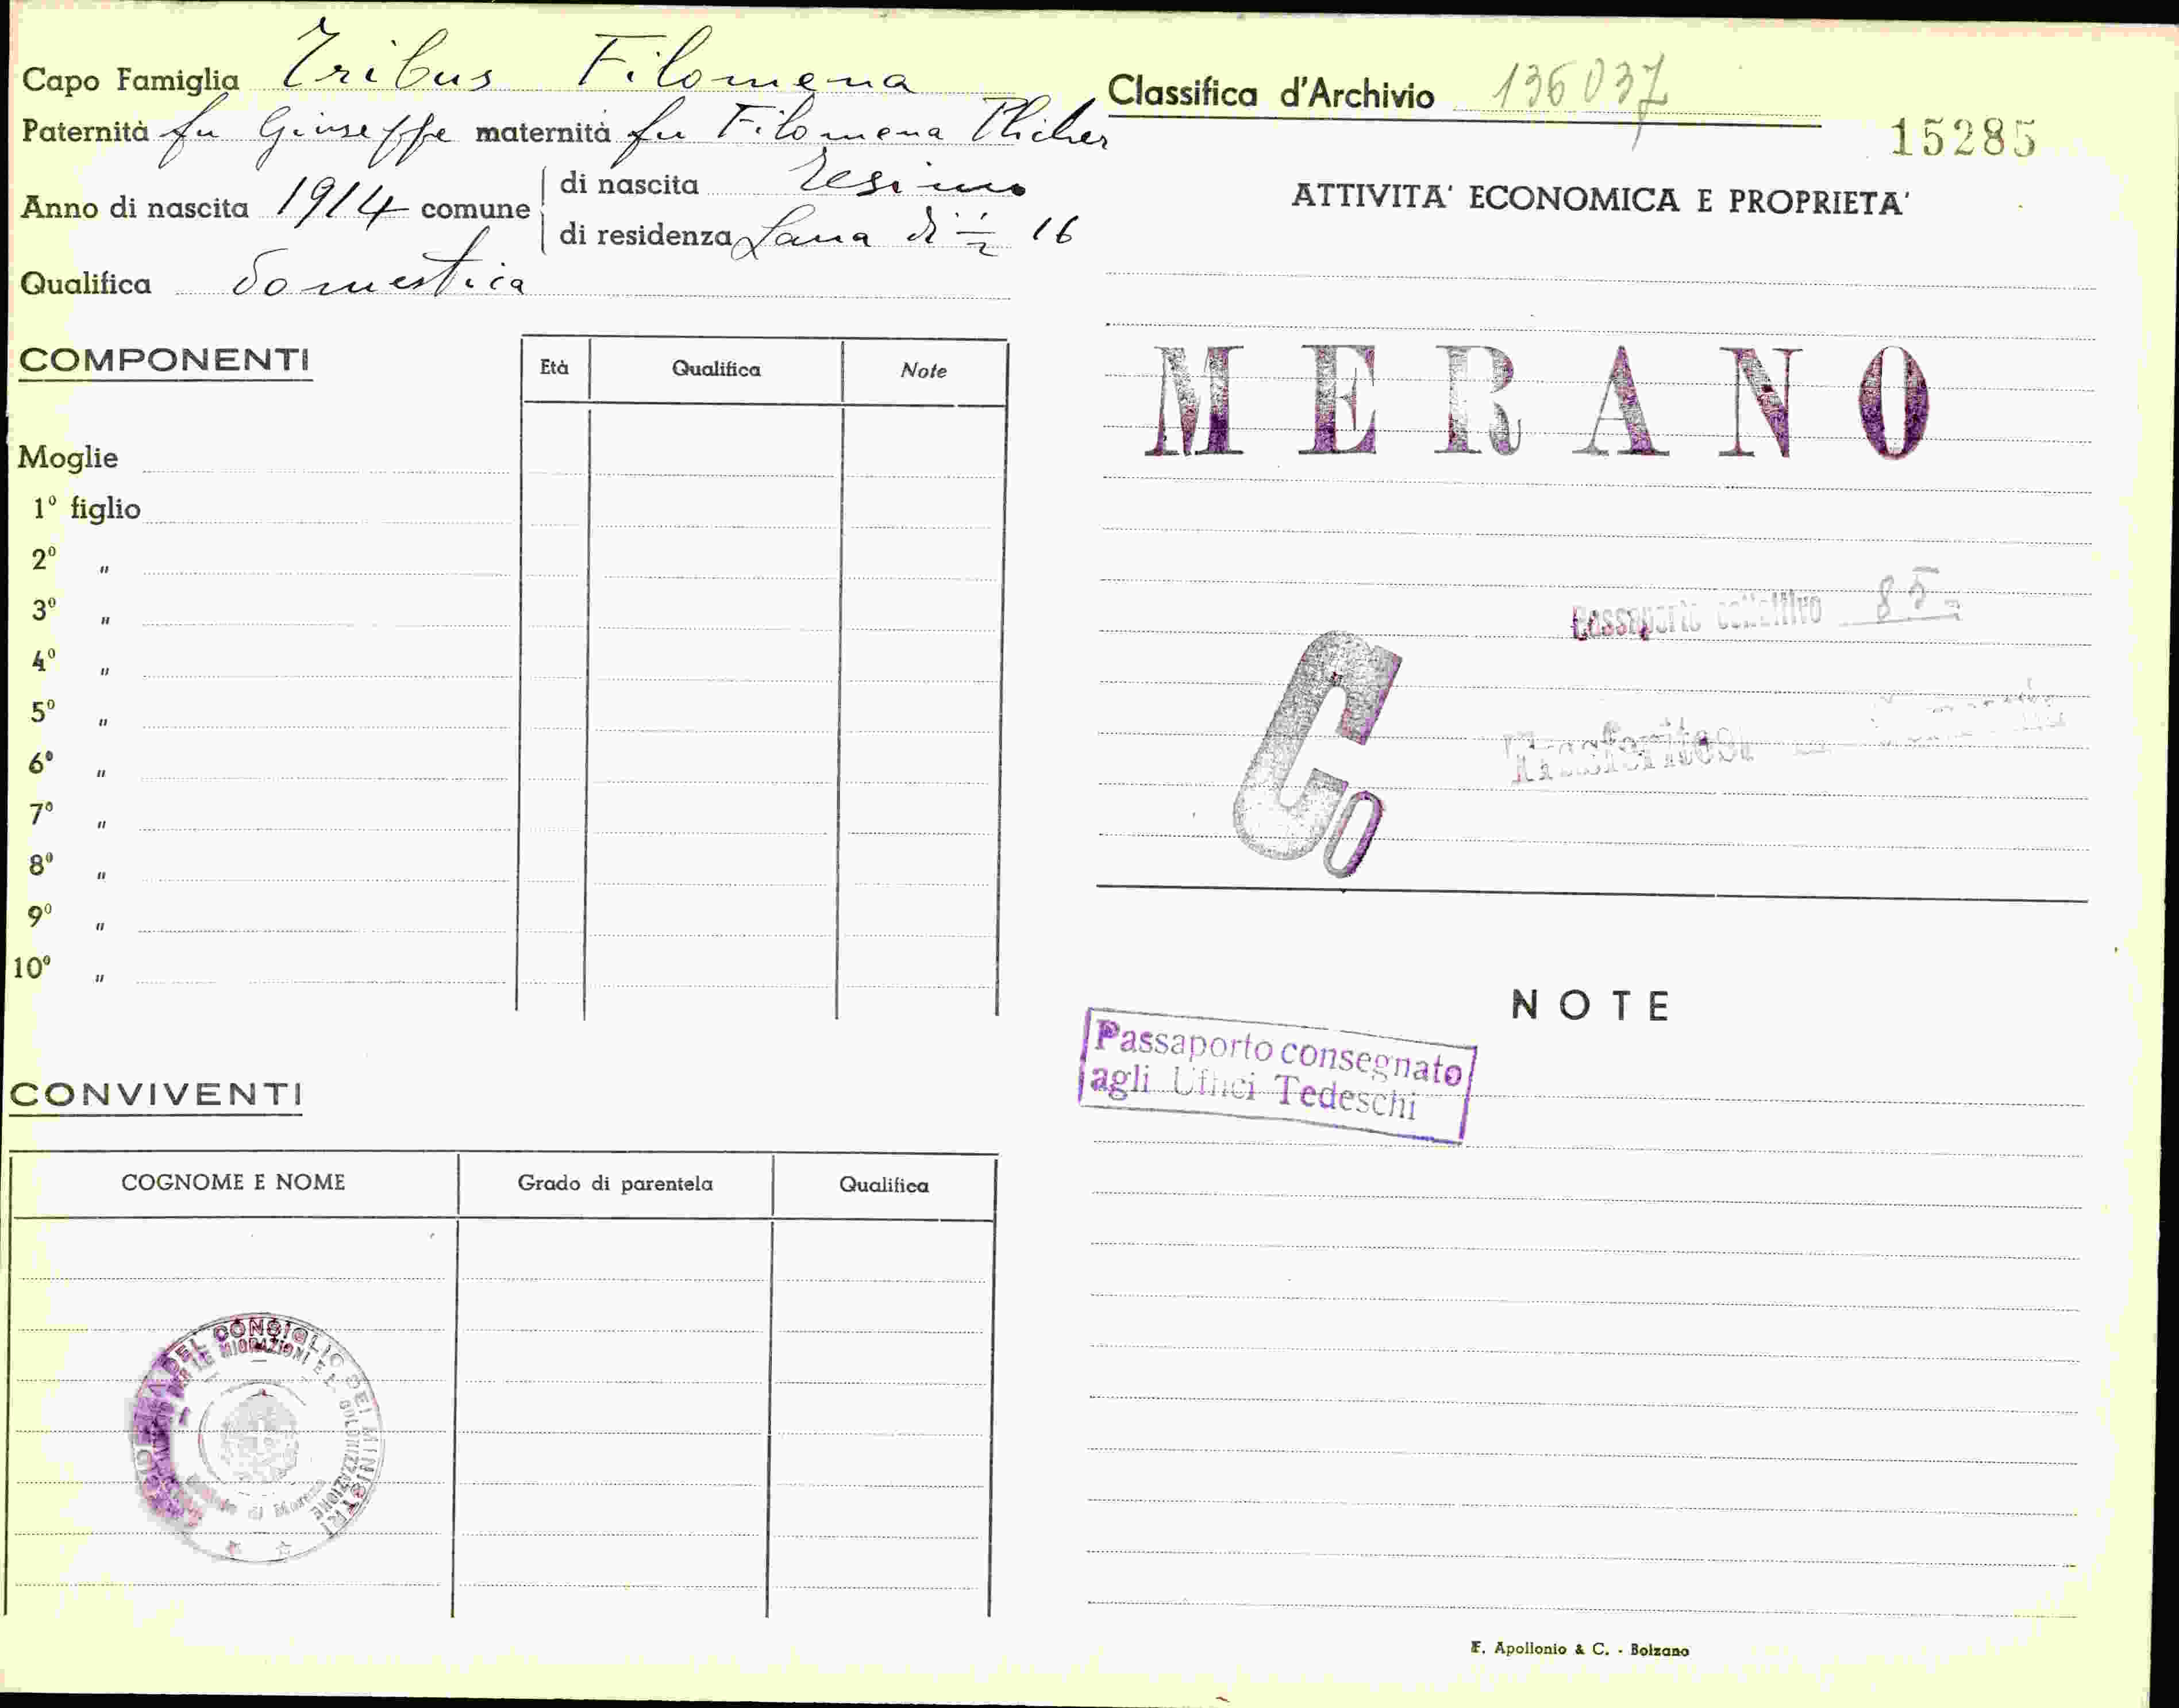 Capo Famiglia Tribus Filomena
Paternità fu Giuseppe maternità fu Filomena
Anno di nascita 1914 comune
di nascita Tesimo
di residenza Lana di 16
Qualifica domestica
COMPONENTI
Età Qualifica Note
Moglie
1º figlio
2º "
3º "
4º "
5º "
6º "
7º "
8º "
9º "
10º "
CONVIVENTI
COGNOME E NOME Grado di parentela Qualifica
DEL CONSIGLIO DEI MINISTRI
LE MIGRAZIONI E COLONIZZAZIONE
di Merano
Classifica d'Archivio 136037
15285
ATTIVITA' ECONOMICA E PROPRIETA'
MERANO
Passaporto collettivo 85
Trasferitosi
Co
NOTE
Passaporto consegnato
agli Uffici Tedeschi
E. Apollonio & C. - Bolzano